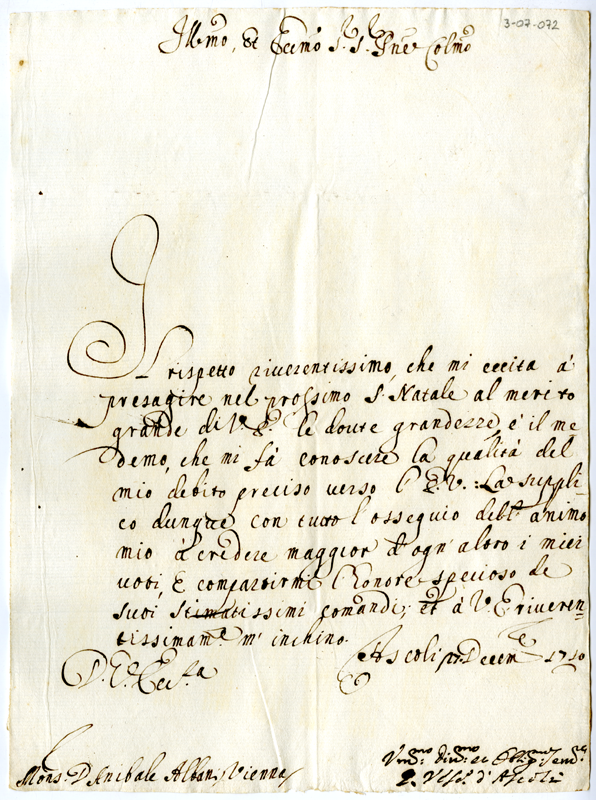 3-07-072
Ill.mo, et Ecc.mo S.r S.r P.ne Col.mo
Il rispetto riverentissimo, che mi eccita à
presagire nel prossimo S. Natale al merito
grande di V. E. le dovute grandezze, è il me
demo, che mi fà conoscere la qualità del
mio debito preciso verso l'E. V.: La suppli-
co dunque con tutto l'ossequio dell' animo
mio à credere maggior d'ogn' altro i miei
voti, e compartirmi l'honore specioso de
suoi stimatissimi comandi; et à V. E. riveren-
tissimam.e m' inchino.
Ascoli p.o Decem.e 1710
D. V. Ecc.za
Mons. D. Anibale Albani Vienna
Um.mo Div.mo et Obl.mo Ser.re
Vesc.o d'Ascoli